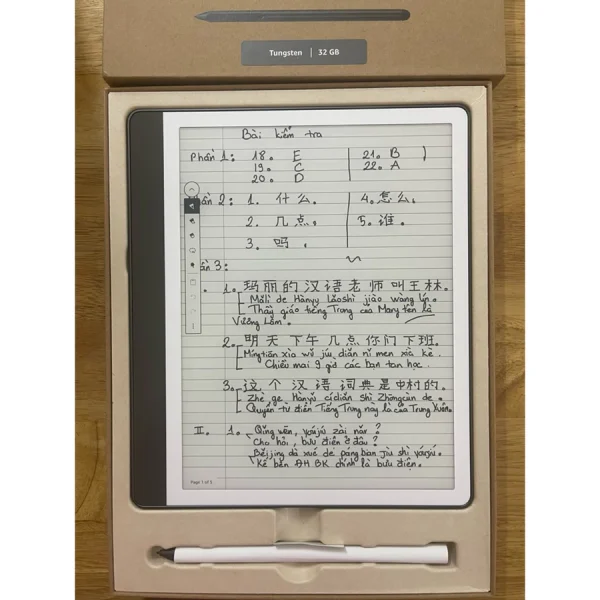 Tungsten | 32 GB
Bài kiểm tra
Phần 1: 18. E
19. C
20. D
21. B
22. A
ần 2: 1. 什么.
2. 几点.
3. 吗.
4. 怎么.
5. 谁.
ần 3:
1. 玛丽的汉语老师叫王林.
Mǎlì de Hànyǔ Lǎoshī jiào wáng lín.
Thầy giáo tiếng Trung của Mary tên là
Vương Lâm.
2. 明天下午几点你们下班.
Míngtiān xìa wǔ jǐu diǎn nǐ men xìa kè.
Chiều mai 9 giờ các bạn tan học.
3. 这个汉语词典是中村的.
Zhè ge Hànyǔ cídiǎn shì Zhōngcūn de.
Quyển từ điển Tiếng Trung này là của Trung Xuân.
II. 1. Qǐng wèn, yóujú zài nǎr?
Cho hỏi, bưu điện ở đâu?
Běijjng dà xué de pángbian jiù shì yóujú.
Kế bên ĐH BK chính là bưu điện.
Page 1 of 5